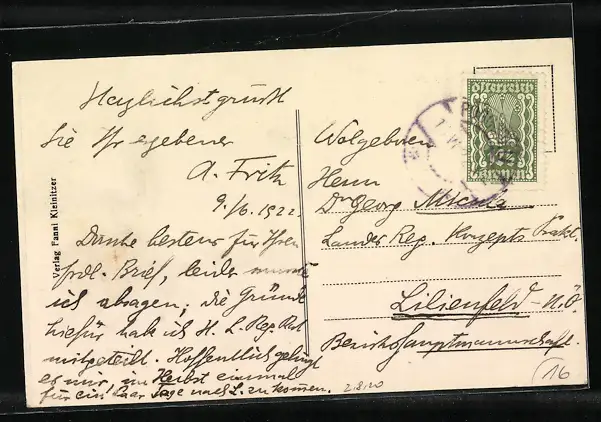 Herzlichst grüsst
Sie Ihr ergebener
A. Fritz
9./6. 1922.
Danke bestens für Ihren
frdl. Brief, leider musste
ich absagen; die Gründe
hiefür hab ich H. L. Reg. Rat
mitgeteilt. Hoffentlich gelingt
es mir, im Herbst einmal
für ein paar Tage nach L. zu kommen.
2.8.20
Verlag Fanni Kleinitzer
österreich
kronen
Wolgeboren
Herrn
Dr Georg
Landes Reg. Konzepts Prakt.
Lilienfeld - N.Ö.
Bezirkshauptmannschaft.
16